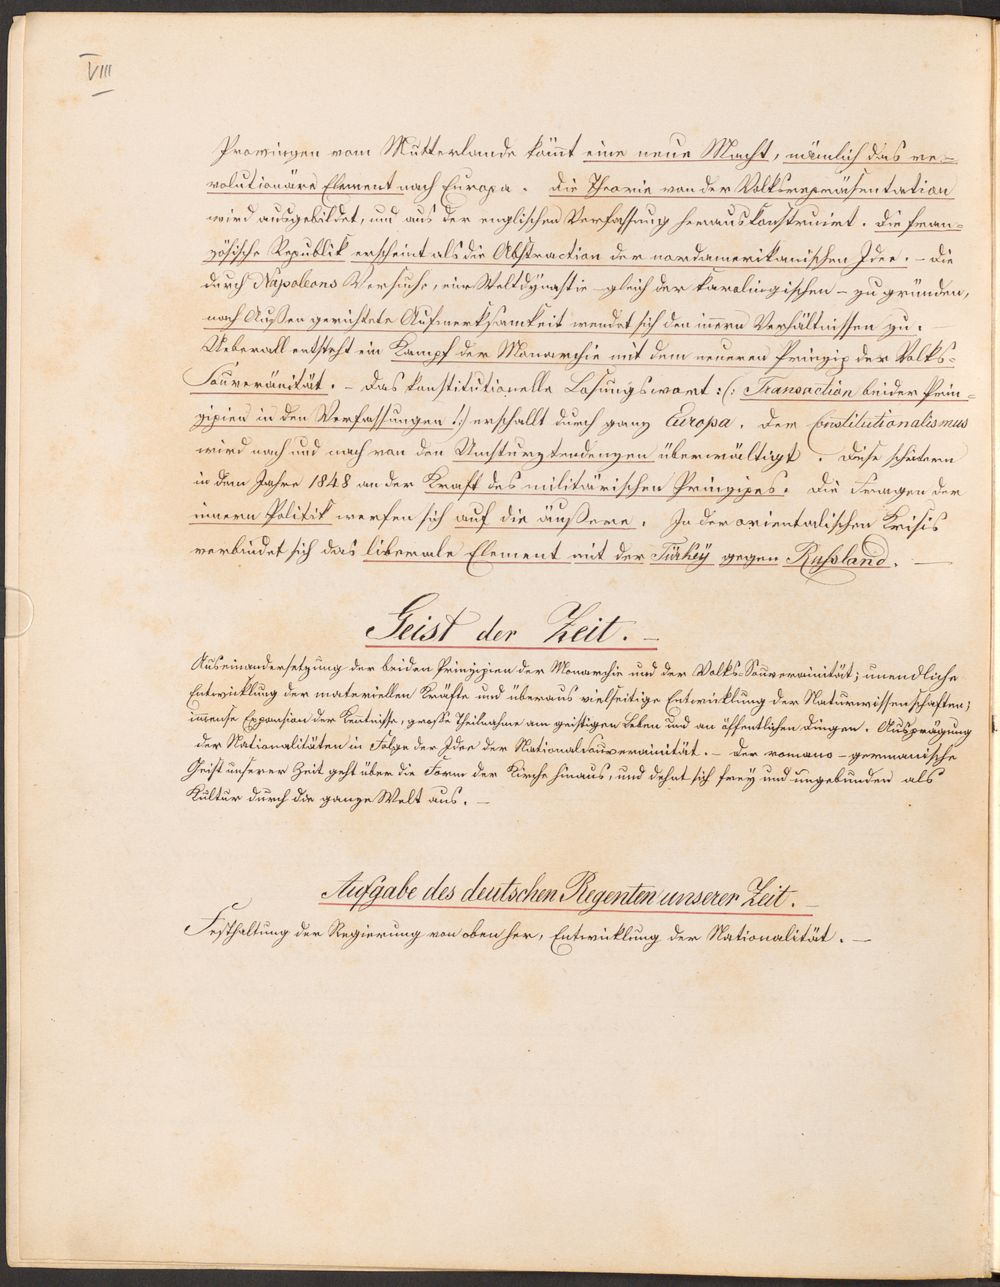 VIII
Provinzen vom Mutterlande kömt eine neue Macht, nämlich das re-
volutionäre Element nach Europa. Die Theorie von der Volksrepräsentation
wird ausgebildet, und aus der englischen Verfassung herauskonstruirt. Die fran-
zösische Republik erscheint als die Abstraction der nordamerikanischen Idee. – Die
durch Napoleons Versuche, eine Weltdynastie – gleich der karolingischen – zu gründen,
nach Außen gerichtete Aufmerksamkeit wendet sich den innern Verhältnissen zu. –
Ueberall entsteht ein Kampf der Monarchie mit dem neueren Prinzip der Volks-
Souveränität. – Das konstitutionelle Losungswort :(: Transaction beider Prin-
zipien in den Verfassungen !:) erschallt durch ganz Europa. Der Constitutionalismus
wird nach und nach von den Umsturztendenzen überwältigt. Diese scheitern
in dem Jahre 1848 an der Kraft des militärischen Prinzipes. Die Fragen der
innern Politik werfen sich auf die äußere. In der orientalischen Krisis
verbindet sich das liberale Element mit der Türkey gegen Russland. –
Geist der Zeit. –
Auseinandersetzung der beiden Prinzipien der Monarchie und der Volks-Souverainität; unendliche
Entwicklung der materiellen Kräfte und überaus vielseitige Entwicklung der Naturwissenschaften;
immense Expansion der Kentnisse, grosse Theilnahme am geistigen Leben und an öffentlichen Dingen. Ausprägung
der Nationalitäten in Folge der Idee der Nationalsouverainität. – Der romano-germanische
Geist unserer Zeit geht über die Form der Kirche hinaus, und dehnt sich frey und ungebunden als
Kultur durch die ganze Welt aus. –
Aufgabe des deutschen Regenten unserer Zeit. –
Festhaltung der Regierung von oben her, Entwicklung der Nationalität. –